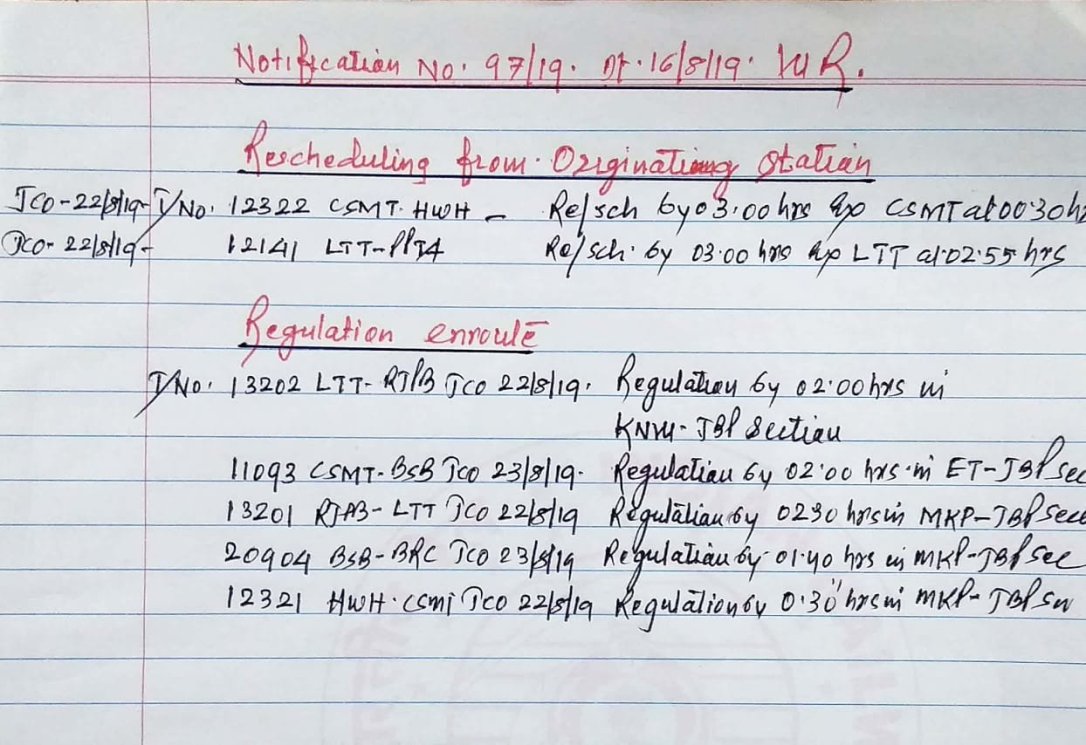 Notification No. 97/19. Dt. 16/8/19. W R.
Rescheduling from Originationg station
JCO-22/8/19- T/No. 12322 CSMT. HWH - Re/sch by 03.00 hrs Exp CSMT at 00.30 h
JCO- 22/8/19- 12141 LTT-PPTA Re/sch. by 03.00 hrs Exp LTT at 02.55 hrs
Regulation enroute
T/No. 13202 LTT- RJPB JCO 22/8/19. Regulation by 02.00 hrs in
KNW- JBP Section
11093 CSMT- BSB JCO 23/8/19. Regulation by 02.00 hrs in ET-JBP sec
13201 RJPB- LTT JCO 22/8/19 Regulation by 0230 hrs in MKP-JBP Sec
20904 BSB-BRC JCO 23/8/19 Regulation by 01.40 hrs in MKP-JBP Sec
12321 HWH. CSMT JCO 22/8/19 Regulation by 0.30 hrs in MKP- JBP